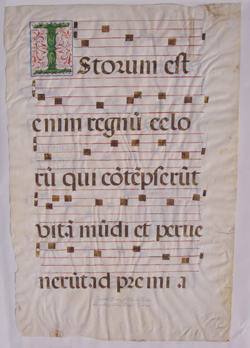 Istorum est
enim regnū celo
rū qui cōtēpserūt
vitā mūdi et perue
nerūt ad premia